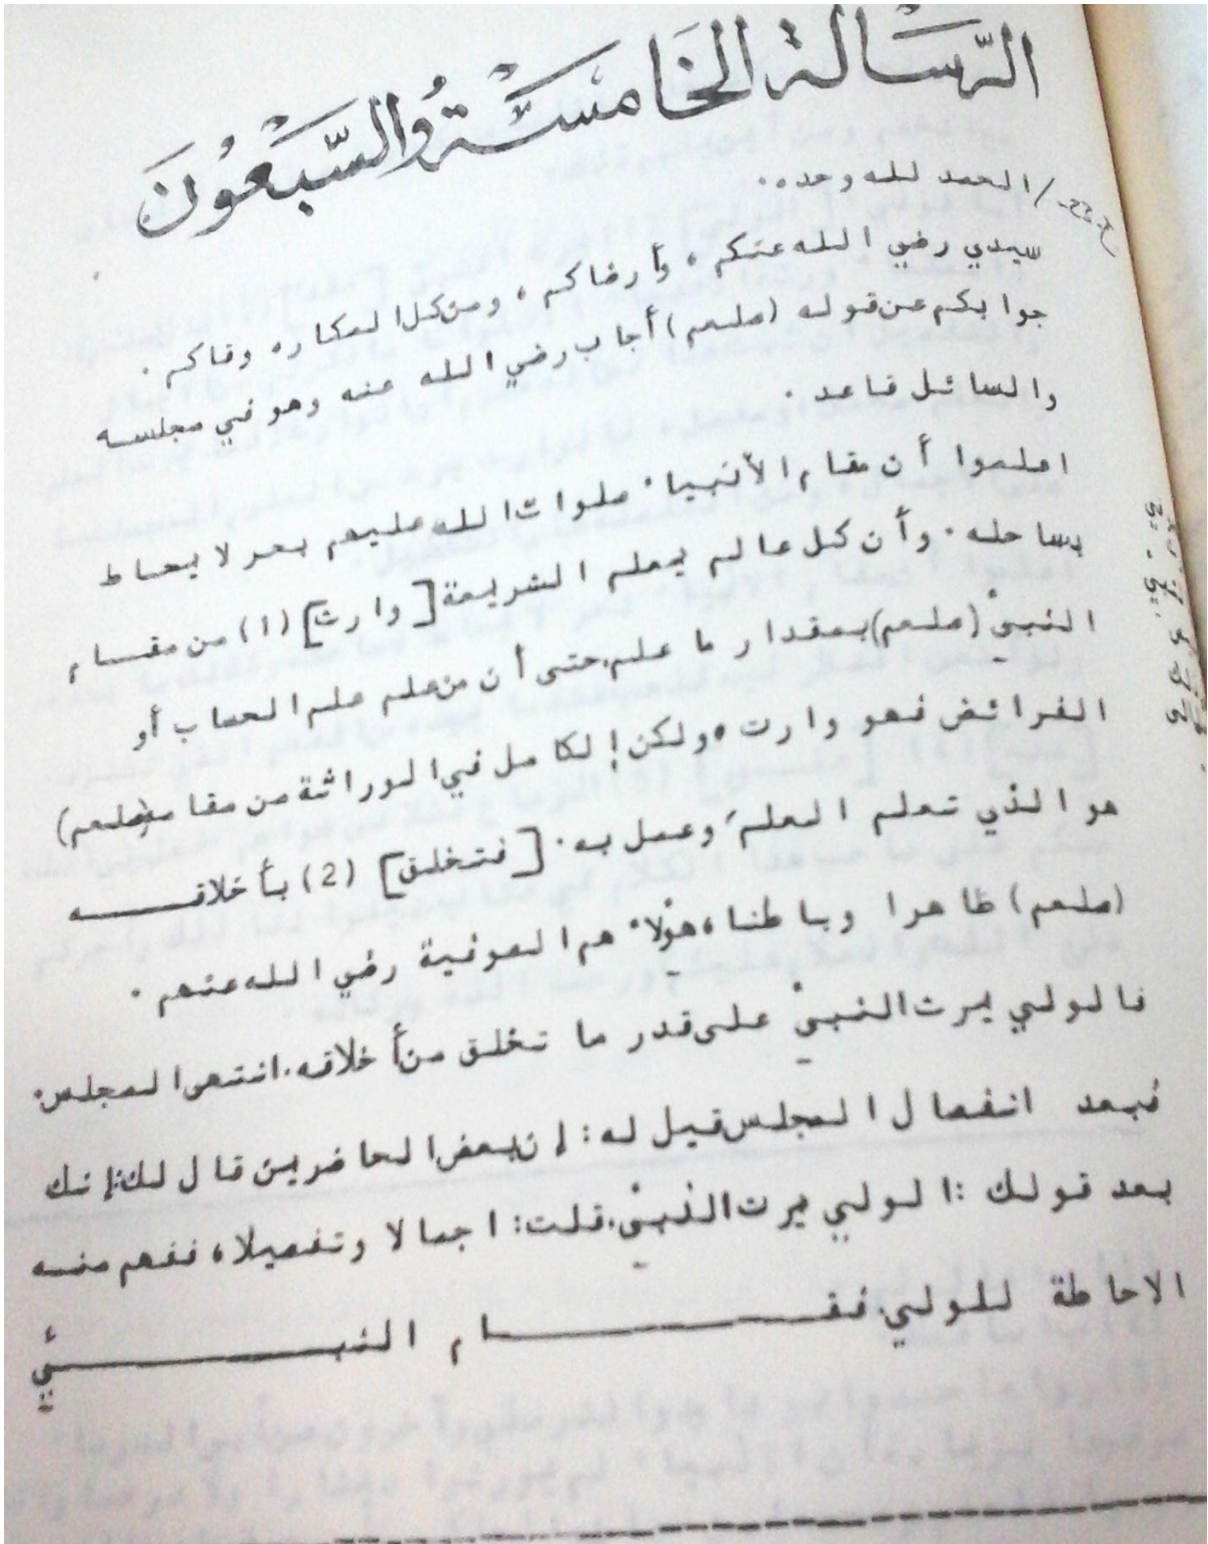 الرّسَالة الخَامسَة وُالسَّبَعُونَ
الحمد لله وحده.
سيدي رضي الله عنكم ، وأرضاكم ، ومن كل المكاره وقاكم .
جوابكم عن قوله (صلعم) أجاب رضي الله عنه وهو في مجلسه
والسائل قاعد .
اعلموا أن مقام الأنبياء صلوات الله عليهم بحر لا يحاط
بساحله . وأن كل عالم يعلم الشريعة [وارث] (1) من مقام
النبيْ (صلعم) بمقدار ما علم، حتى أن من علم علم الحساب أو
الفرائض فهو وارت ، ولكن إلكامل في الوراثة من مقامه (صلعم)
هو الذي تعلم العلمَ وعمل به . [فتخلق] (2) بأخلاقه
(صلعم) ظاهرا وباطنا ، هؤلاء هم الصوفية رضي الله عنهم .
فالولي يرث النبيْ على قدر ما تخلق من أخلاقه. انتهى المجلس.
فبعد انفصال المجلس قيل له : إن بعض الحاضرين قال لك : إنك
بعد قولك : الولي يرث النبيْ. قلت : اجمالا وتفصيلا ، ففهم منه
الاحاطة للولي. فقام النبئي